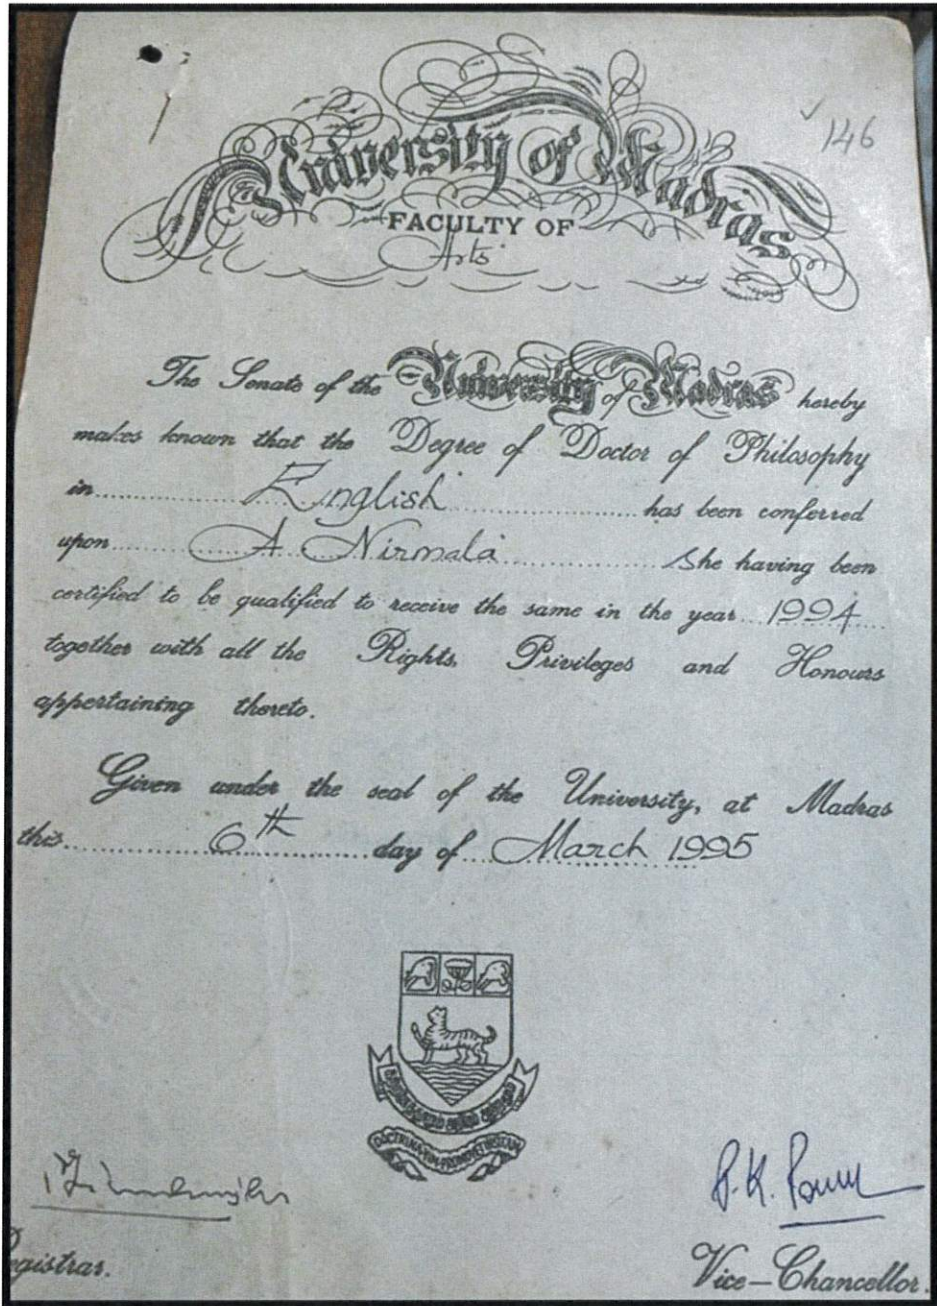 146
University of Madras
FACULTY OF
Arts
The Senate of the University of Madras hereby
makes known that the Degree of Doctor of Philosophy
in English has been conferred
upon A Nirmala She having been
certified to be qualified to receive the same in the year 1994
together with all the Rights, Privileges and Honours
appertaining thereto.
Given under the seal of the University, at Madras
this 6th day of March 1995
DOCTRINA VIM PROMOVET INSITAM
egistrar.
Vice-Chancellor.